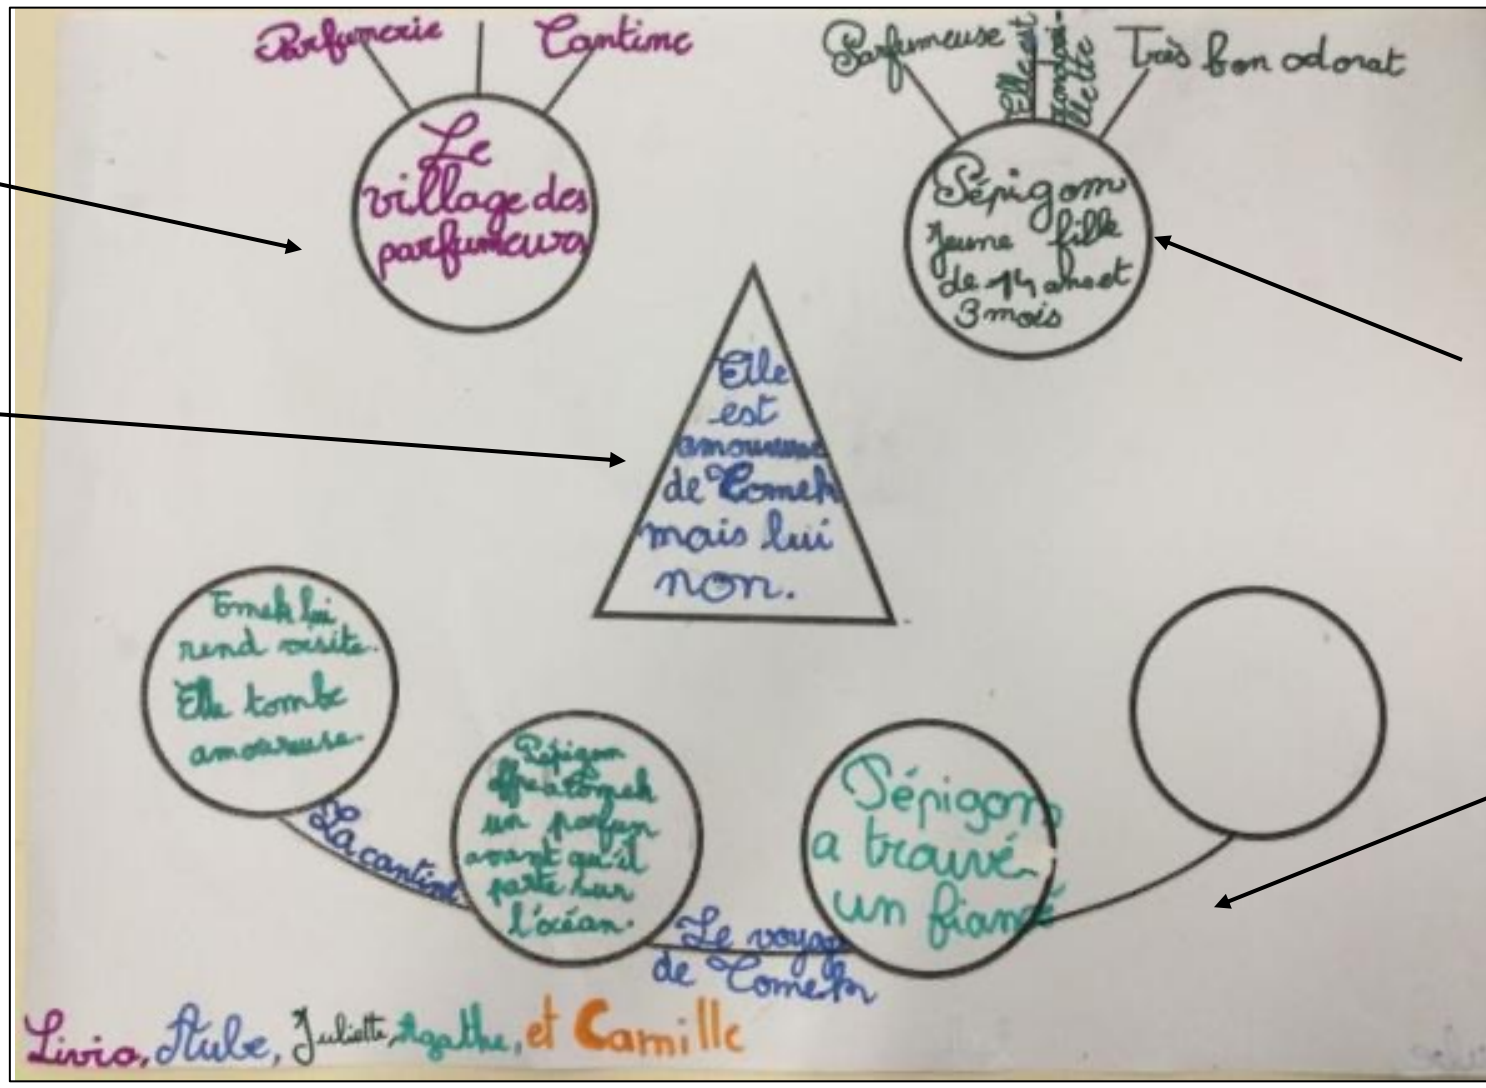 Parfumerie
Cantine
Le
village des
parfumeurs
Parfumeuse
Elle est
Très bon odorat
Pépigom
Jeune fille
de 14 ans et
3 mois
Elle
est
amoureuse
de Tomek
mais lui
non.
Tomek lui
rend visite.
Elle tombe
amoureuse.
La cantine
Pépigom
offre a Tomek
un parfum
avant qu'il
parte sur
l'océan.
Le voyage
de Tomek
Pépigom
a trouvé
un fiancé
Livio, Aube, Juliette, Agathe, et Camille